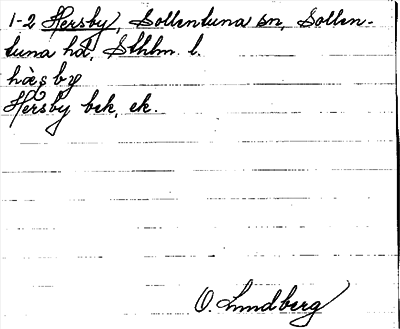 1-2 Hersby, Sollentuna sn, Sollen-
tuna hd, Sthlm l.
hæ̀ʂby
Hersby bek, ek.
O. Lundberg